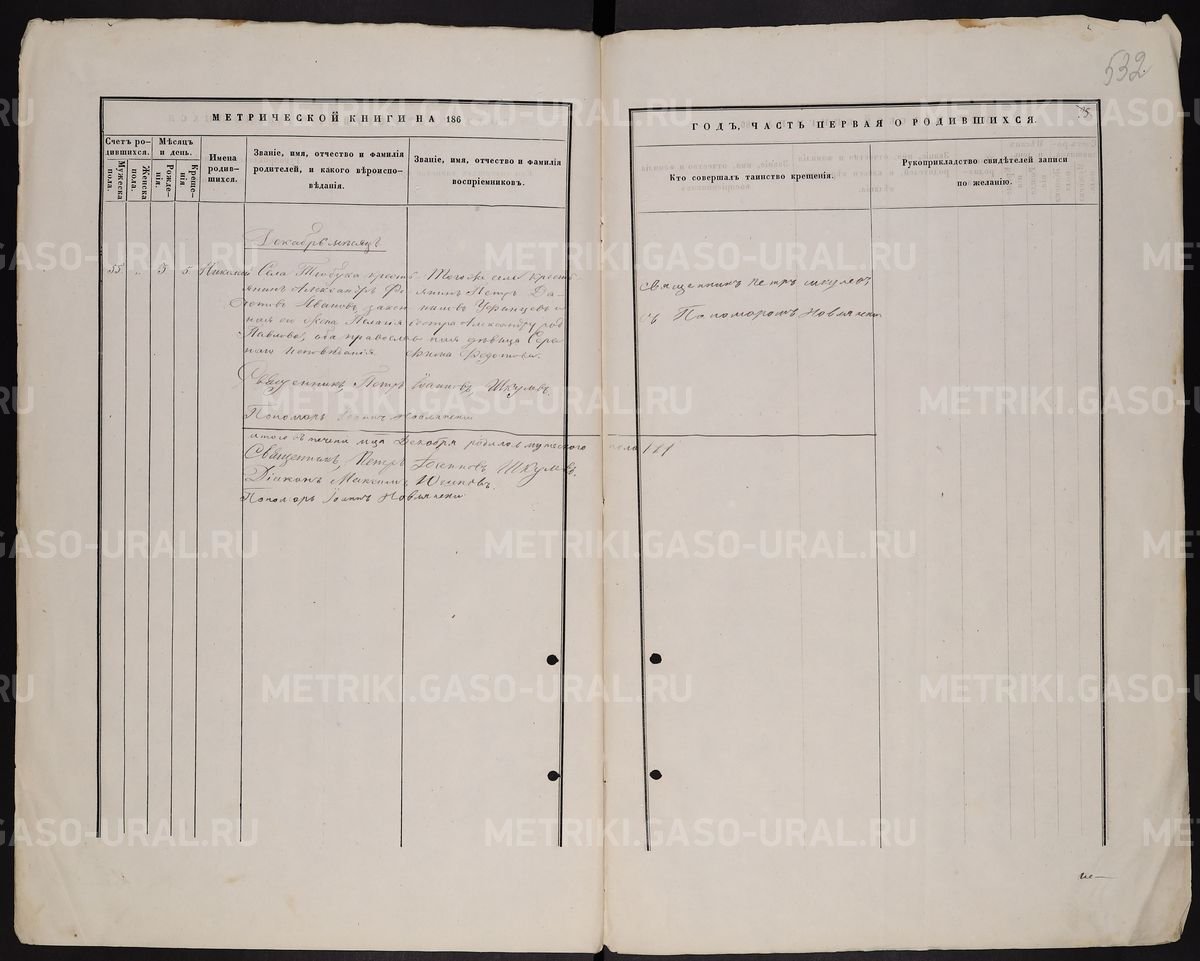 532
МЕТРИЧЕСКОЙ КНИГИ НА 186
ГОДЪ, ЧАСТЬ ПЕРВАЯ О РОДИВШИХСЯ.
Счетъ ро-
дившихся.
Мужеска
пола.
Женска
пола.
Мѣсяцъ
и день.
Рожде-
нія.
Креще-
нія
Имена
родив-
шихся.
Званіе, имя, отчество и фамилія
родителей, и какого вѣроиспо-
вѣданія.
Званіе, имя, отчество и фамилія
воспріемниковъ.
Кто совершалъ таинство крещенія.
Рукоприкладство свидѣтелей записи
по желанію.
Декабрь мѣсяцъ
55 " 3 5 Николай
Села крестъ
янинъ Александръ Ѳе
Ивановъ, закон
ная его жена Пелагія
Павлова, оба православ
наго исповѣданія.
Тогоже села крестъ
янинъ Петръ Да-
ниловъ и
сестра Александру род
ная дѣвица Сера
фима Федотова.
Священникъ Петръ
съ Пономоремъ
Священникъ Петръ Іоанновъ
Пономарь Іоаннъ
Итого въ течени мца Декабря родилось мужескаго пола 1
Священникъ, Петръ Іоанновъ
Діаконъ Максимъ
Пономарь Іоаннъ
METRIKI.GASO-URAL.RU